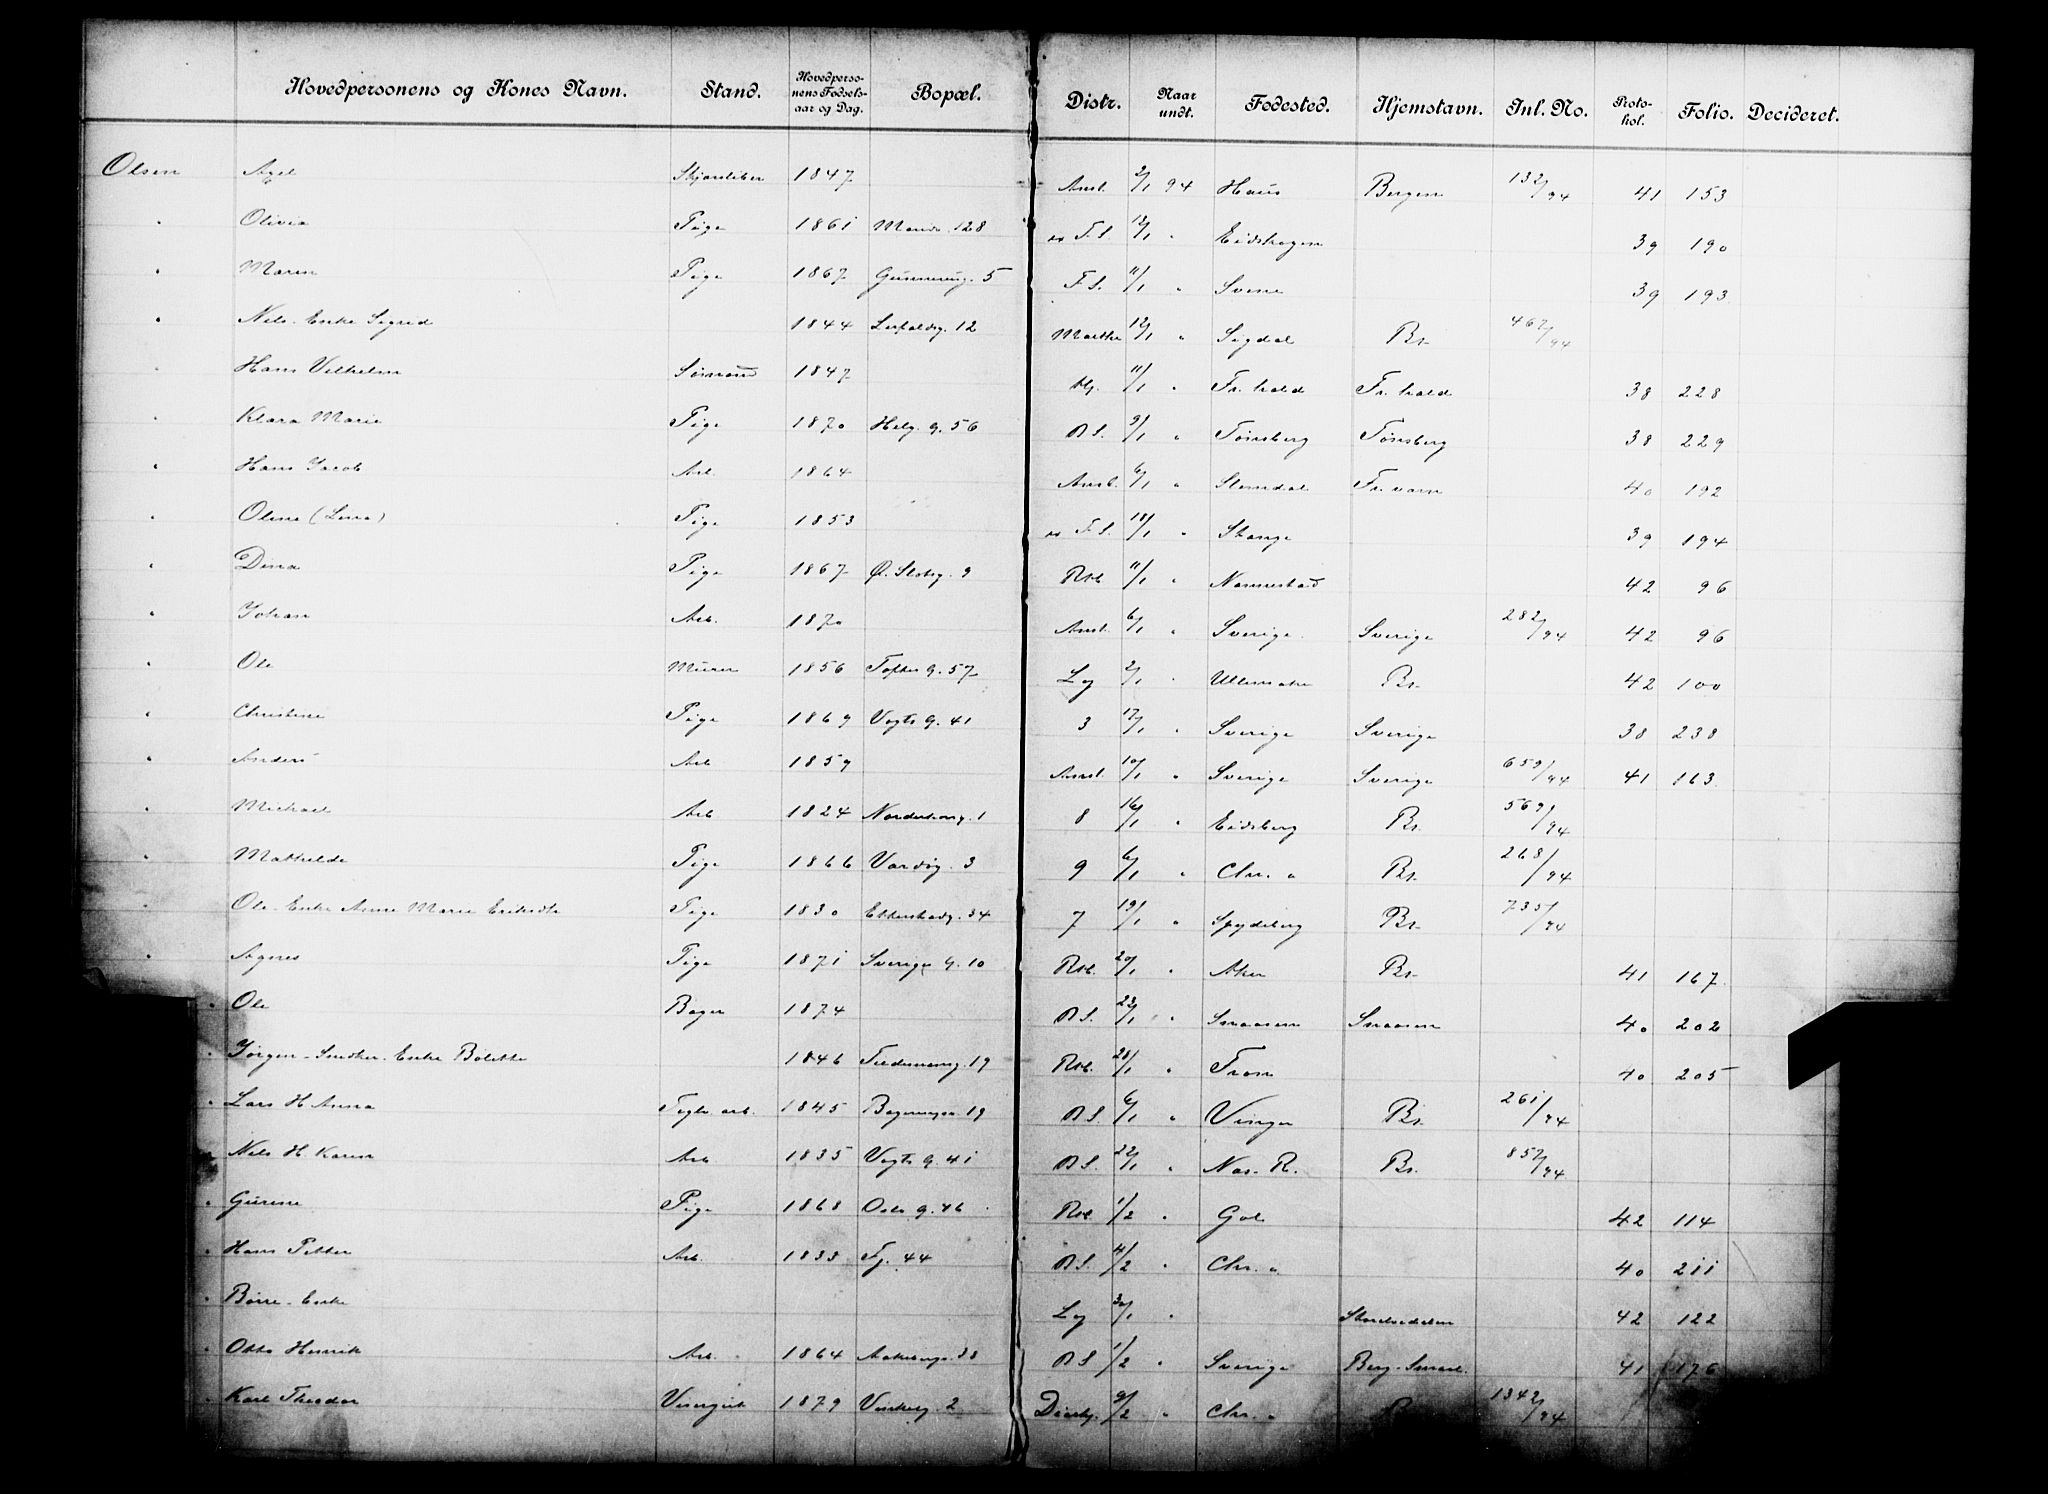 Hovedpersonens og Kones Navn. Stand. Hovedpersonens Fødselsaar og Dag. Bopæl. Distr. Naar undt. Fødested. Hjemstavn. Inl. No. Protokol. Folio. Decideret.
Olsen Axel 1847 Anst. 2/1 94 Haus Bergen 132/94 41 153
" Olivia Pige 1861 128 F.S. 12/1 " Eidskogen 39 190
" Maren Pige 1867 5 F.S. 11/1 " Svene 39 193
" Nils. Enke Sigrid 1844 12 12/1 " Sigdal Br. 467/94
" Hans Vilhelm Sømand 1847 11/1 " Fr.hald Fr.hald 38 228
" Klara Marie Pige 1870 Helg. g. 56 B.S. 9/1 " Tønsberg Tønsberg 38 229
" Hans Jacob Arb. 1864 Anst. 6/1 " Slemdal Fr.værn 40 192
" Oline (Lina) Pige 1853 F.S. 18/1 " Stange 39 194
" Dina Pige 1867 Ø. Slotsg. 9 Rst. 11/1 " Nannestad 42 96
" Johan Arb. 1870 Anst. 6/1 " Sverige Sverige 282/94 42 96
" Ole Murer 1856 Toftes g. 57 Lg 2/1 " Ullensaker Br. 42 100
" Christine Pige 1869 Vogts g. 41 3 17/1 " Sverige Sverige 38 238
" Anders Arb 1859 Anst. 10/1 " Sverige Sverige 659/94 41 163
" Michael Arb 1824 1 8 16/1 " Eidsberg Br. 569/94
" Mathilde Pige 1866 Vardøg. 3 9 6/1 " Chr.a Br. 268/94
" Ole. Enke Anne Marie Eriksdtr Pige 1830 Etterstadg. 34 7 19/1 " Spydeberg Br. 735/94
" Agnes Pige 1871 Sverigs g. 10 Rst. 20/1 " Aker Br. 41 167
" Ole Bager 1874 B.S. 23/1 " Snaasen Snaasen 40 202
" Jørgen. Snedker. Enke Bolette 1846 Tidemansg. 19 Rst. 28/1 " 40 205
" Lars H Anna Teglv. arb. 1845 19 B.S. 6/1 " Vinger Br. 261/94
" Nils H Karen Arb 1835 Vogts g. 41 B.S. 22/1 " Nes. R. Br. 857/94
" Gurine Pige 1868 Oslo g. 46 Rst. 1/2 " Gol 42 114
" Hans Petter Arb. 1833 44 B.S. 4/2 " Chr.a 40 211
" Børre. Enke Lg 30/1 " 42 122
" Otto Henrik Arb. 1864 Aakebergv. 38 B.S 1/2 " Sverige 41 176
" Karl Theodor Visergut 1879 2 9/2 " Chr.a Br 1342/94